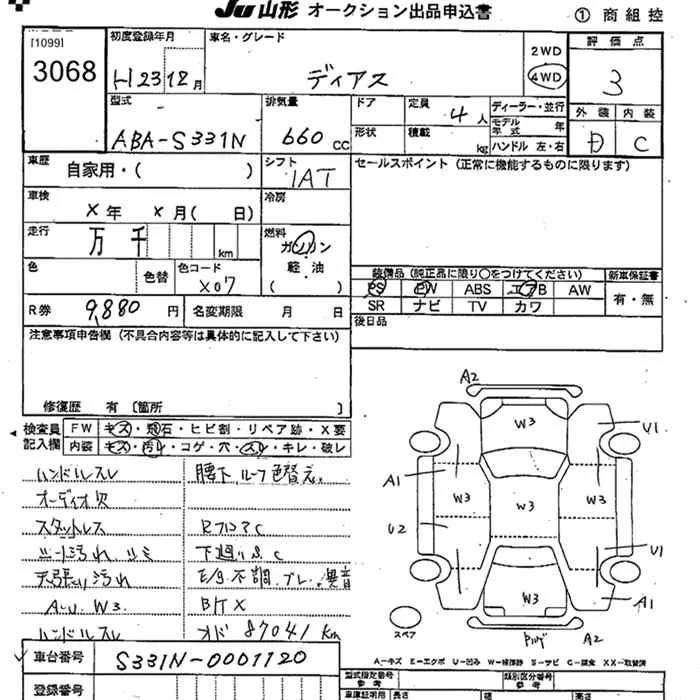 JU山形 オークション出品申込書 ① 商組控
[1099]
3068
初度登録年月
H23 12月
車名・グレード
ディアス
2WD
4WD
評価点
3
型式
ABA-S331N
排気量
660 CC
ドア
形状
定員
4人
積載
kg
ディーラー・並行
モデル年式 年
ハンドル 左・右
外装 内装
D C
車歴
自家用・( )
シフト
IAT
セールスポイント (正常に機能するものに限ります)
車検
X年 X月( 日)
冷房
走行
万 千 km
燃料
ガソリン
軽・油
( )
色
色替
色コード
X07
装備品 (純正品に限り○をつけてください)
PS PW ABS エアB AW
SR ナビ TV カワ
新車保証書
有・無
R券 9,880 円
名変期限 月 日
後日品
注意事項申告欄 (不具合内容等は具体的に記入して下さい)
修復歴 有 〔箇所 〕
検査員記入欄
FW キズ・飛石・ヒビ割・リペア跡・X要
内装 キズ・汚れ・コゲ・穴・スレ・キレ・破レ
ハンドルスレ 腰下、ルーフ色替え
オーディオ欠
スタットレス
シート汚れ シミ 下廻りS.C
天張り汚れ E/g不調 ブレ、異音
A.U. W3 B/T X
ハンドルスレ オド 87041 km
A2
W3
U1
A1
W3
W3
W3
U2
U1
W3
A1
スペア
A2
A-キズ E-エクボ U-凹み W-補修跡 S-サビ C-腐食 XX-取替済
車台番号 S331N-0001120
登録番号
型式指定番号
参考
類別区分番号
参考
車庫証明用 長さ 幅 高さ